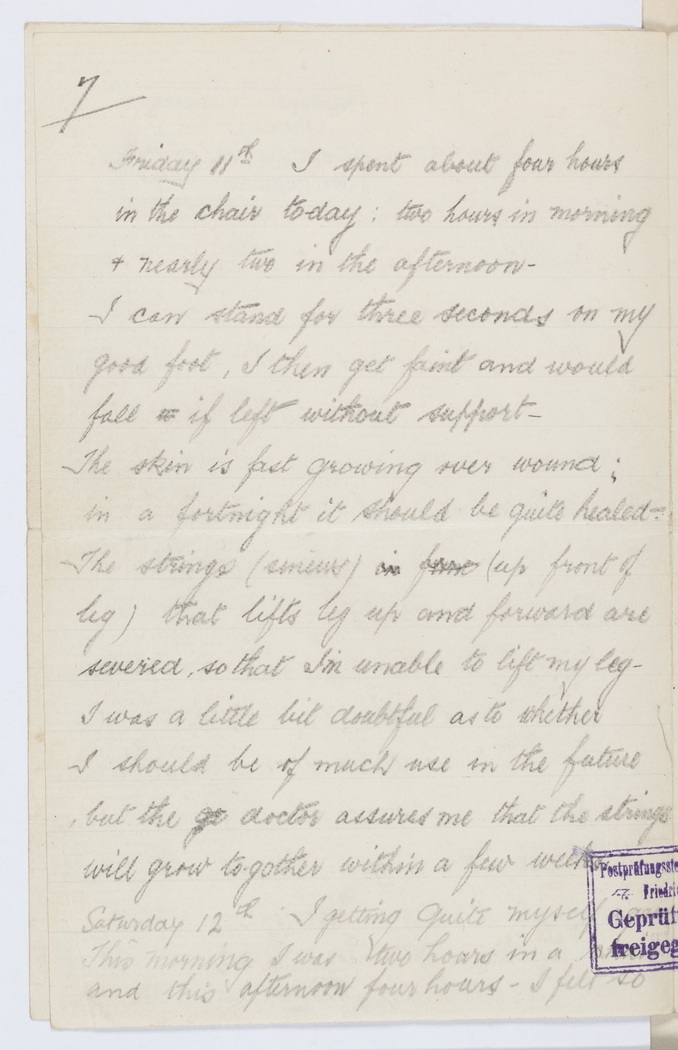 7
Friday 11th I spent about four hours
in the chair today : two hours in morning
+ nearly two in the afternoon-
I can stand for three seconds on my
good foot, I then get faint and would
fall if left without support-
The skin is fast growing over wound ;
in a fortnight it should be quite healed-
The strings (sinews) in from (up front of
leg) that lifts leg up and forward are
severed, so that I'm unable to lift my leg-
I was a little bit doubtful as to whether
I should be of much use in the future
, but the doctor assures me that the strings
will grow to-gother within a few weeks
Saturday 12th I getting quite myself
This morning I was two hours in a
and this afternoon four hours - I felt so
Postprüfungsste
Friedri
Geprüf
freigeg